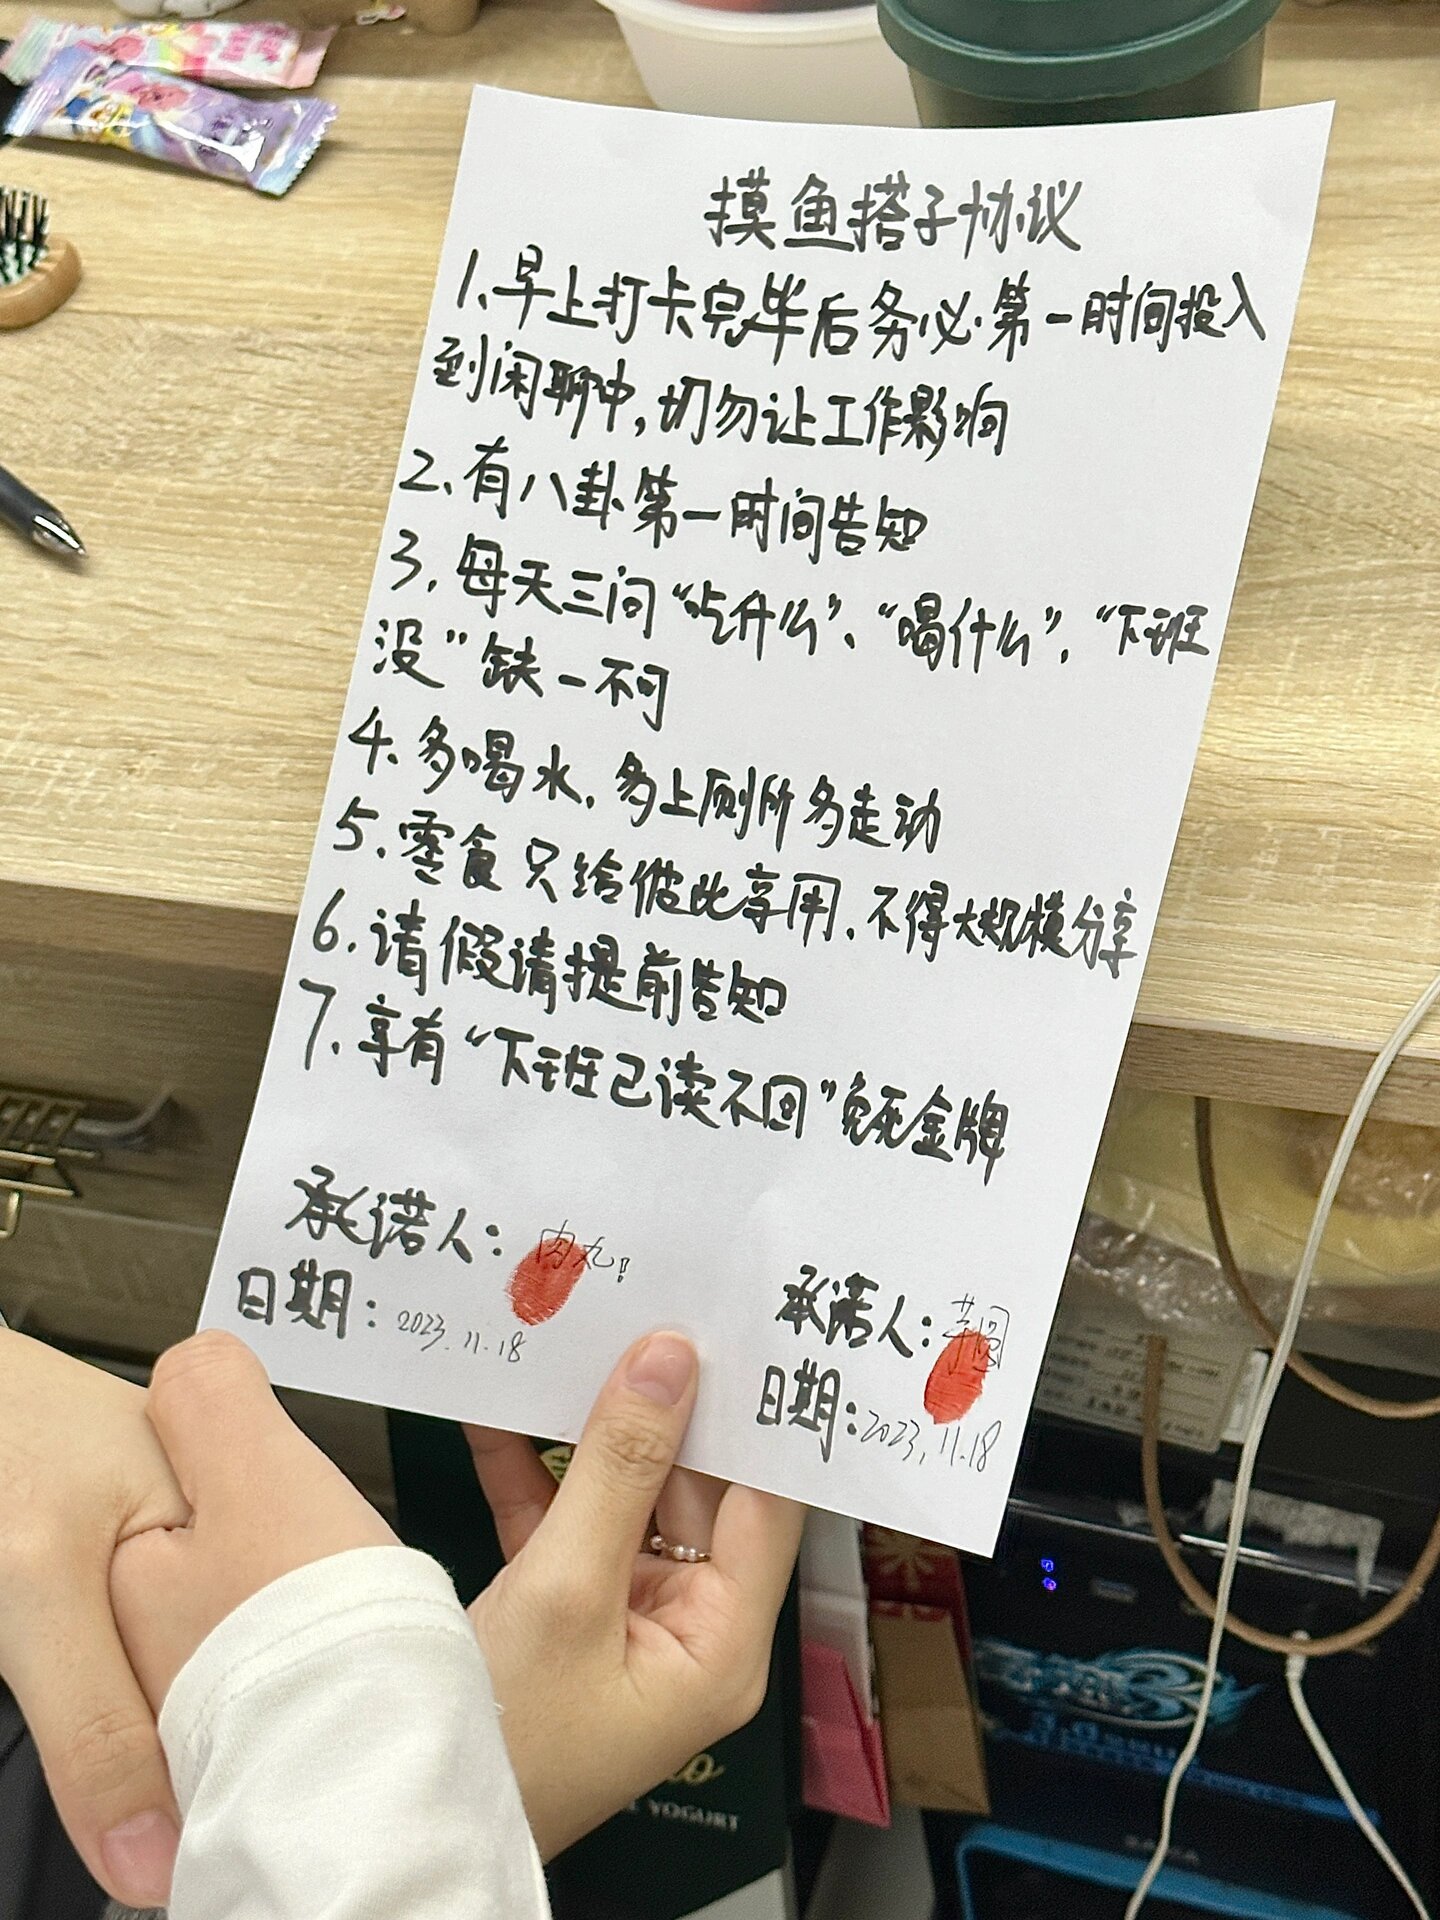 摸鱼搭子协议
1、早上打卡完毕后务必第一时间投入
到闲聊中,切勿让工作影响
2、有八卦第一时间告知
3.每天三问“吃什么”、“喝什么”、“下班
没”缺一不可
4、多喝水、多上厕所多走动
5.零食只给彼此享用、不得大规模分享
6.请假请提前告知
7.享有“下班已读不回”免死金牌
承诺人：肉丸!
日期：2023.11.18
承诺人：芋圆
日期：2023.11.18
YOGURT